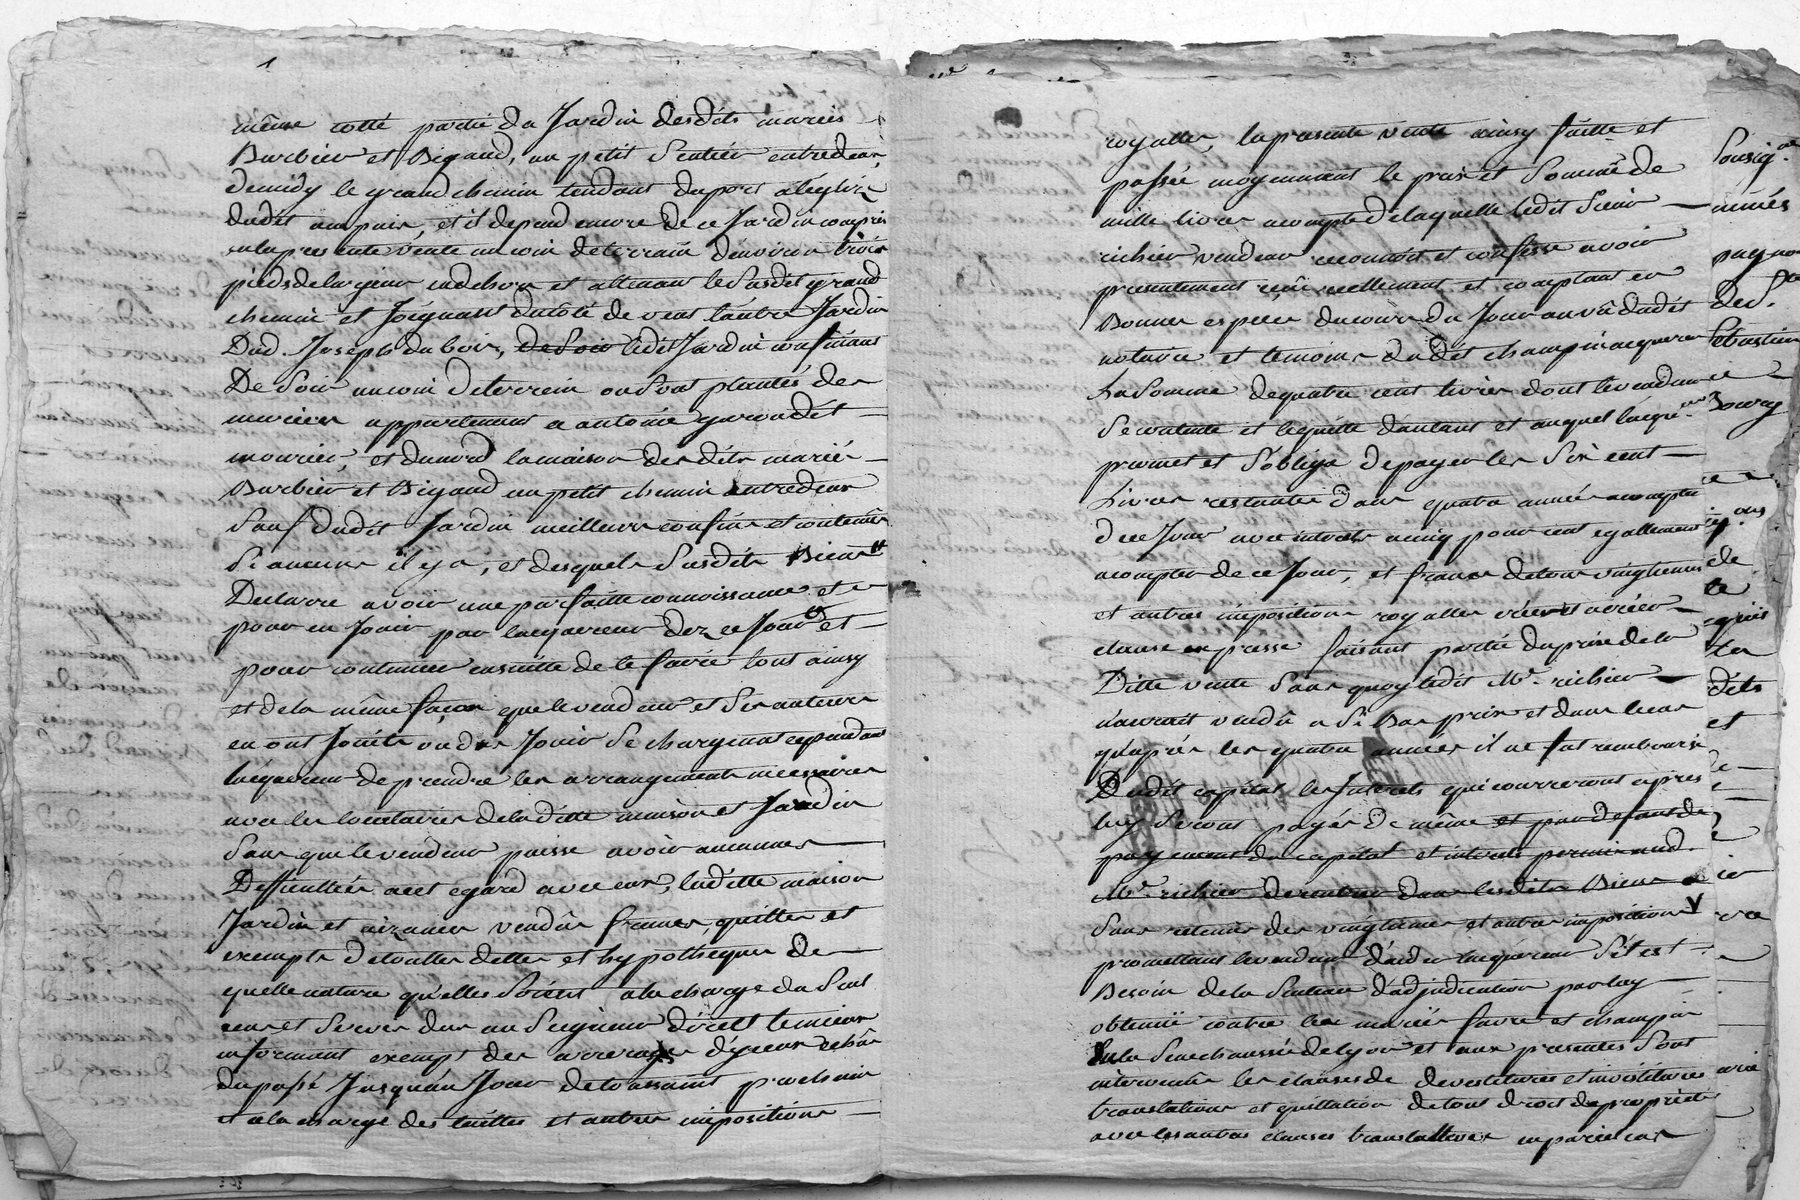 1
même cotté partie du Jardin desdits mariés
Barbier et Bigaud, un petit Sentier entredeux,
demidy le grand chemin tendant du port a leglize
dudit ampuis, et il depend encore de ce Jardin compris
ala presente vente un coin de terrain denviron trois
pieds de largeur en dehors et attenant le Susdit grand
chemin et Joignant du côté de vent l'autre Jardin
Dud. Joseph dubois, de Soir ledit Jardin confinant
De Soir un coin de terrein ou sont plantés des
muriers appartenant a antoine garon dit
mourier, et du nord la maison desdits mariés
Barbier et Bigaud un petit chemin entredeux
Sauf dudit Jardin meilleurs confins et contenües
Si aucuns il y à, et desquels Susdits Biens
Declarre avoir une parfaitte connoissance et
pour en Jouir par lacquereur dez ce Jour et
pour continuer ensuitte de le faire tout ainsy
et de la même façon que le vendeur et Ses auteurs
en ont Joüit ou dus Jouir Se chargeant cependant
lacquereur de prendre les arrangements necessaires
avec les locataires de la ditte maison et Jardin
Sans que le vendeur puisse avoir aucunes
Difficultées acet egard avec eux, laditte maison
Jardin et aizances vendüs francs, quittes et
exempts de touttes dettes et hypotheques de
quelle nature qu'elles Soient a la charge du Seul
cens et Servis dus au Seigneur direct
informant exempt des arrerages d'yceux echûs
du passé Jusqu'au Jour de toussaint prochain
et a la charge des tailles et autres impositions
royalles, la presente vente ainsy faitte et
passée moyennant le prix et Somme de
mille livres acompte de laquelle ledit Sieur
richier vendeur reconnoit et confesse avoir
presentement reçû reellement et comptant en
Bonnes especes du cours du Jour au vû dudit
notaire et temoins dudit champin acquereur
La Somme de quatre cent livres dont le vendeur
Se contente et lequitte d'autant et auquel lacqr.
promet et S'oblige de payer les Six cent
Livres restantes dans quatre années acompter
de ce Jour avec interets acinq pour cent egallement
acompter de ce Jour, et francs de tous vingtiemes
et autres impositions royalles créés et acréer
clause expresse faisant partie du prix de la
Ditte vente Sans quoy ledit Mr. richier
n'auroit vendû a Si Bas prix et dans le cas
qu'après les quatre années il ne fut remboursé
Dudit capital les Interets qui courreront apres
luy Seront payés de même et par defaut de
payement du capital et interets permis aud.
Mr. richier de rentrer dans lesdits Biens
Sans retenue des vingtiemes et autres impositions
promettant le vendeur d'aider lacquereur S'il est
Besoin de la Sentence d'adjudication par luy
obtenüe contre les mariés favre et champin
En la Senechaussée de Lyon et aux presentes Sont
intervenües les clauses de devestitures et investitures
translations et quittation de tout droit de proprieté
avec les autres clauses translatives en pareil cas
Sousig.
payeme
ded.
Sebastien
Bourg
de
dits
et